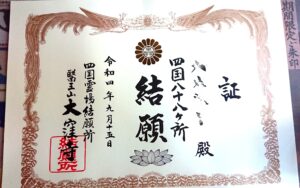 証
殿
四国八十八ヶ所
結願
令和四年九月十五日
四国霊場結願所
醫王山大窪寺